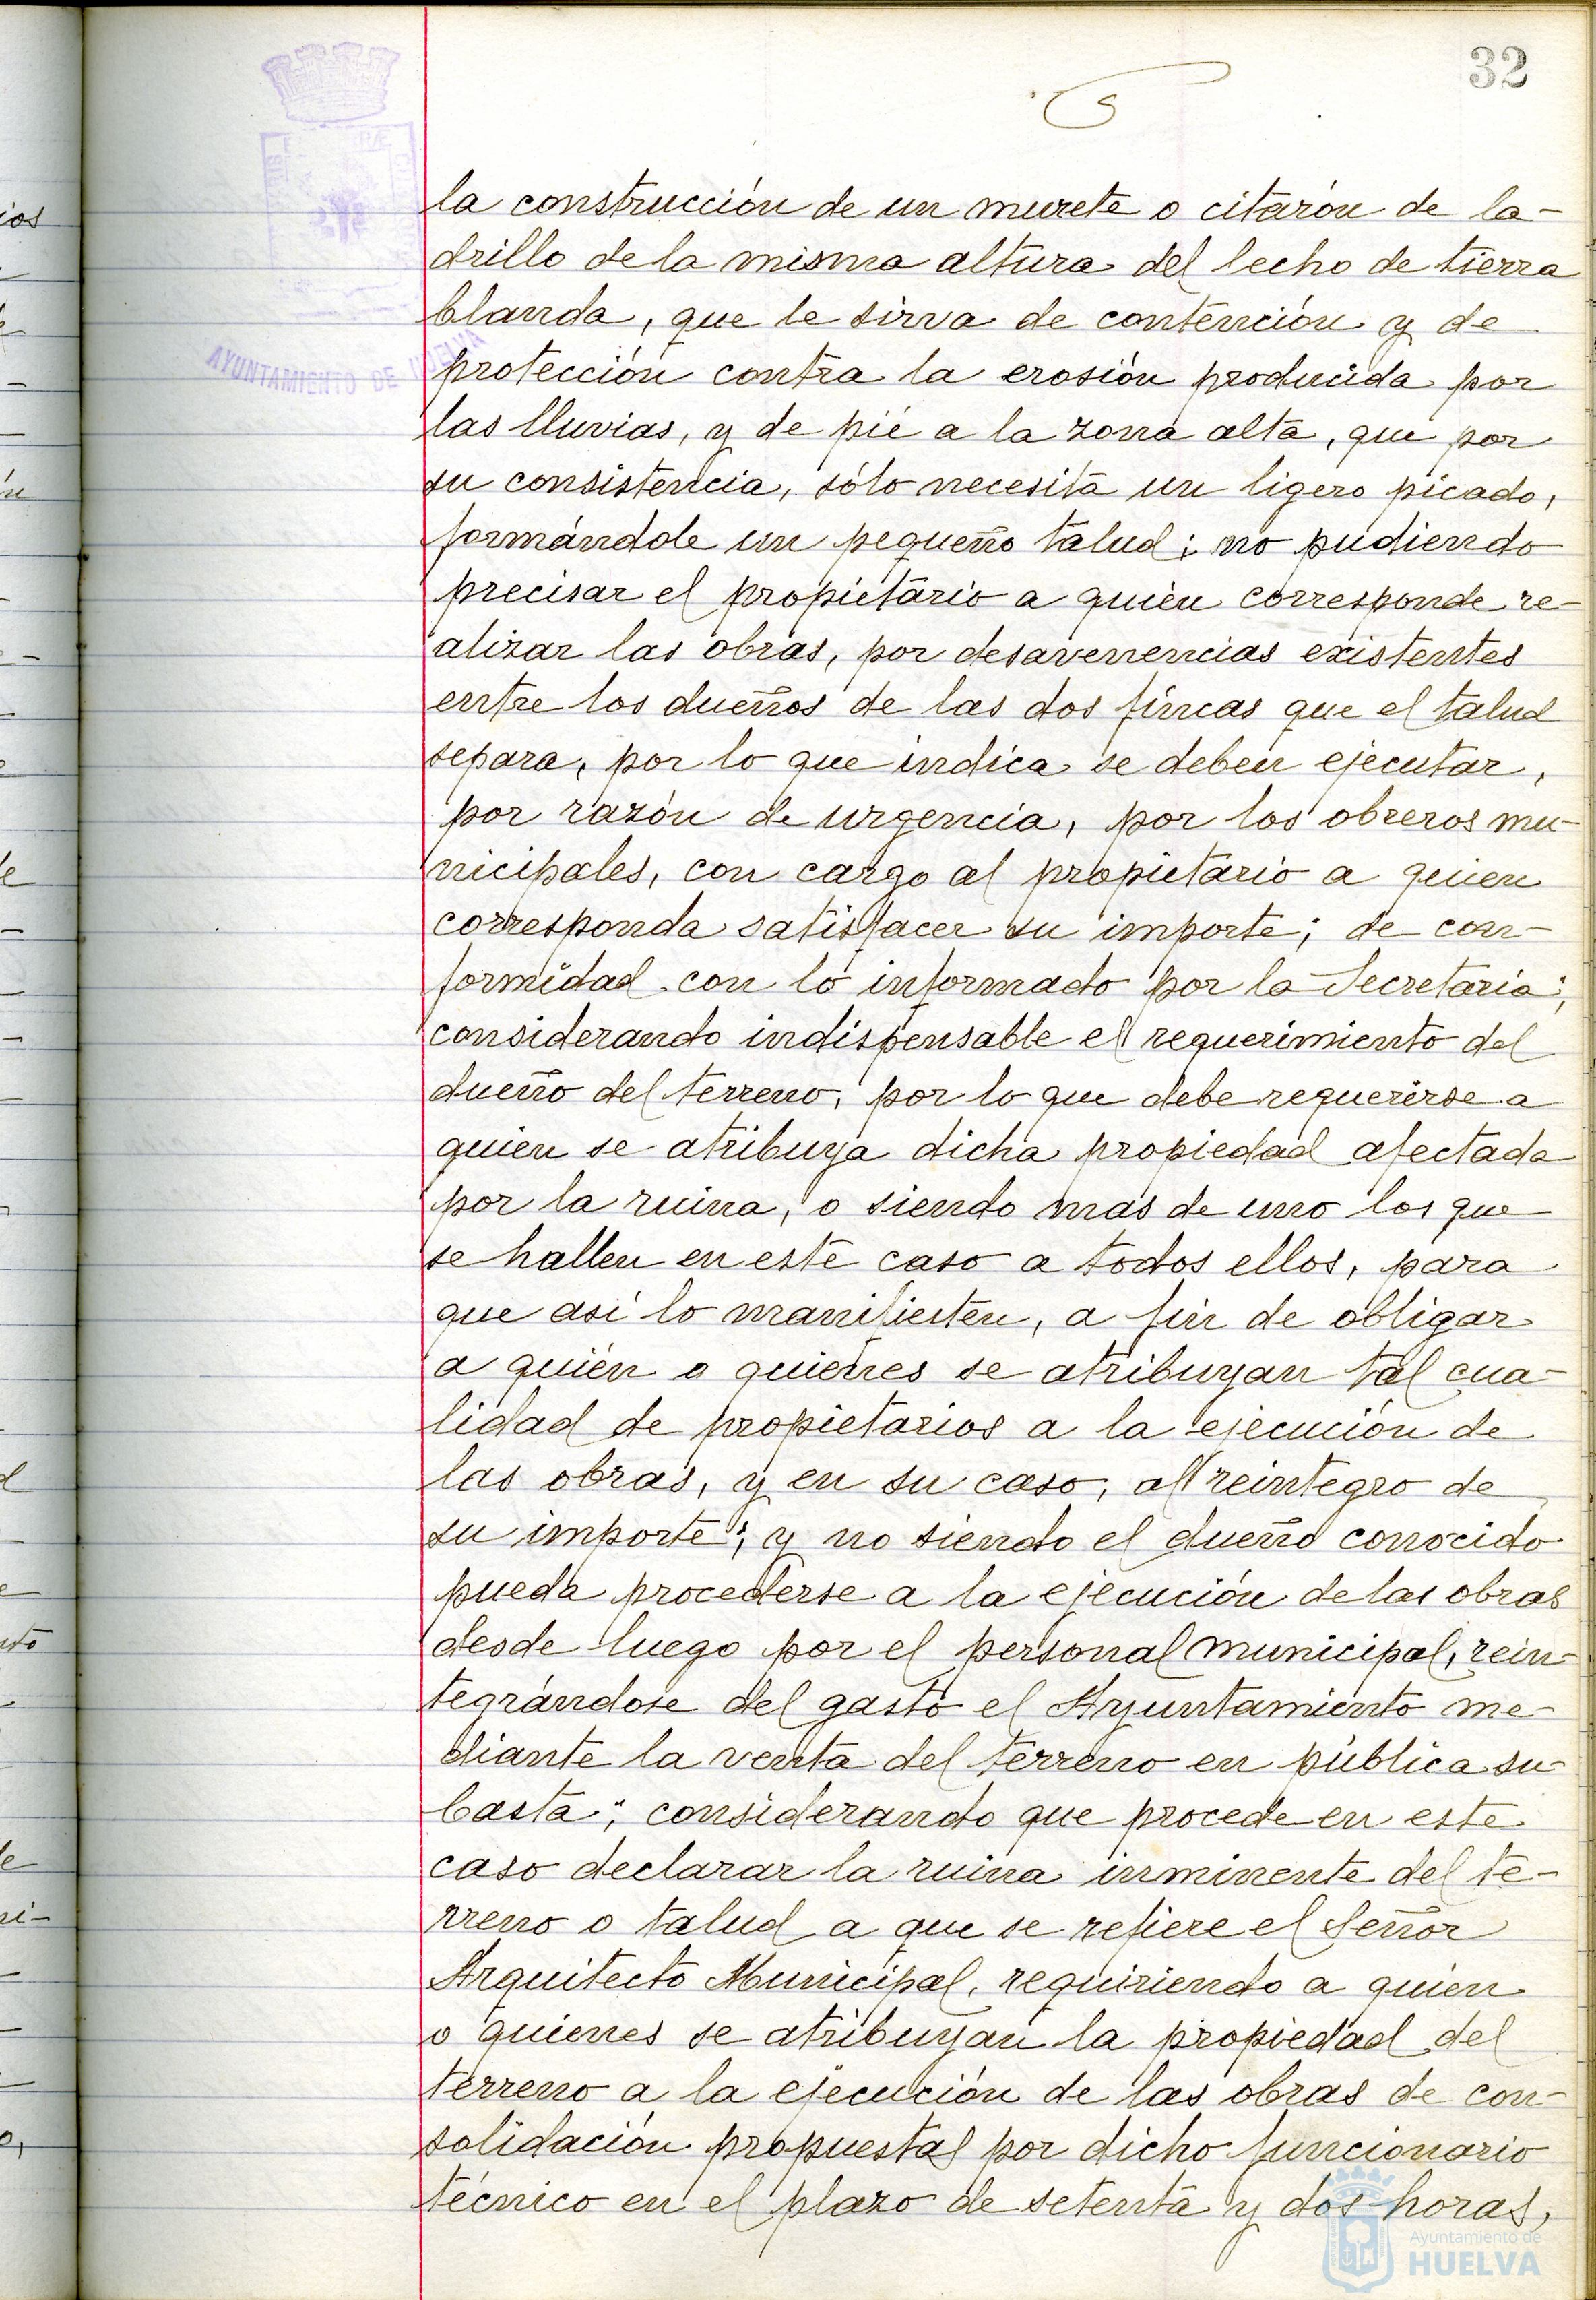 32
la construcción de un murete o citarón de la-
drillo de la misma altura del lecho de tierra
blanda, que le sirva de contención y de
protección contra la erosión producida por
las lluvias, y de pié a la zona alta, que por
su consistencia, sólo necesita un ligero picado,
formándole un pequeño talud; no pudiendo
precisar el propietario a quien corresponde re-
alizar las obras, por desavenencias existentes
entre los dueños de las dos fincas que el talud
separa, por lo que indica se deben ejecutar,
por razón de urgencia, por los obreros mu-
nicipales, con cargo al propietario a quien
corresponda satisfacer su importe; de con-
formidad con lo informado por la Secretaría;
considerando indispensable el requerimiento del
dueño del terreno, por lo que debe requerirse a
quien se atribuya dicha propiedad afectada
por la ruina, o siendo más de uno los que
se hallen en este caso a todos ellos, para
que así lo manifiesten, a fin de obligar
a quien o quienes se atribuyan tal cua-
lidad de propietarios a la ejecución de
las obras, y en su caso, al reintegro de
su importe; y no siendo el dueño conocido
pueda procederse a la ejecución de las obras
desde luego por el personal municipal, rein-
tegrándose del gasto el Ayuntamiento me-
diante la venta del terreno en pública su-
basta; considerando que procede en este
caso declarar la ruina inminente del te-
rreno o talud a que se refiere el Señor
Arquitecto Municipal, requiriendo a quien
o quienes se atribuyan la propiedad del
terreno a la ejecución de las obras de con-
solidación propuestas por dicho funcionario
técnico en el plazo de setenta y dos horas,
AYUNTAMIENTO DE HUELVA
Ayuntamiento de
HUELVA